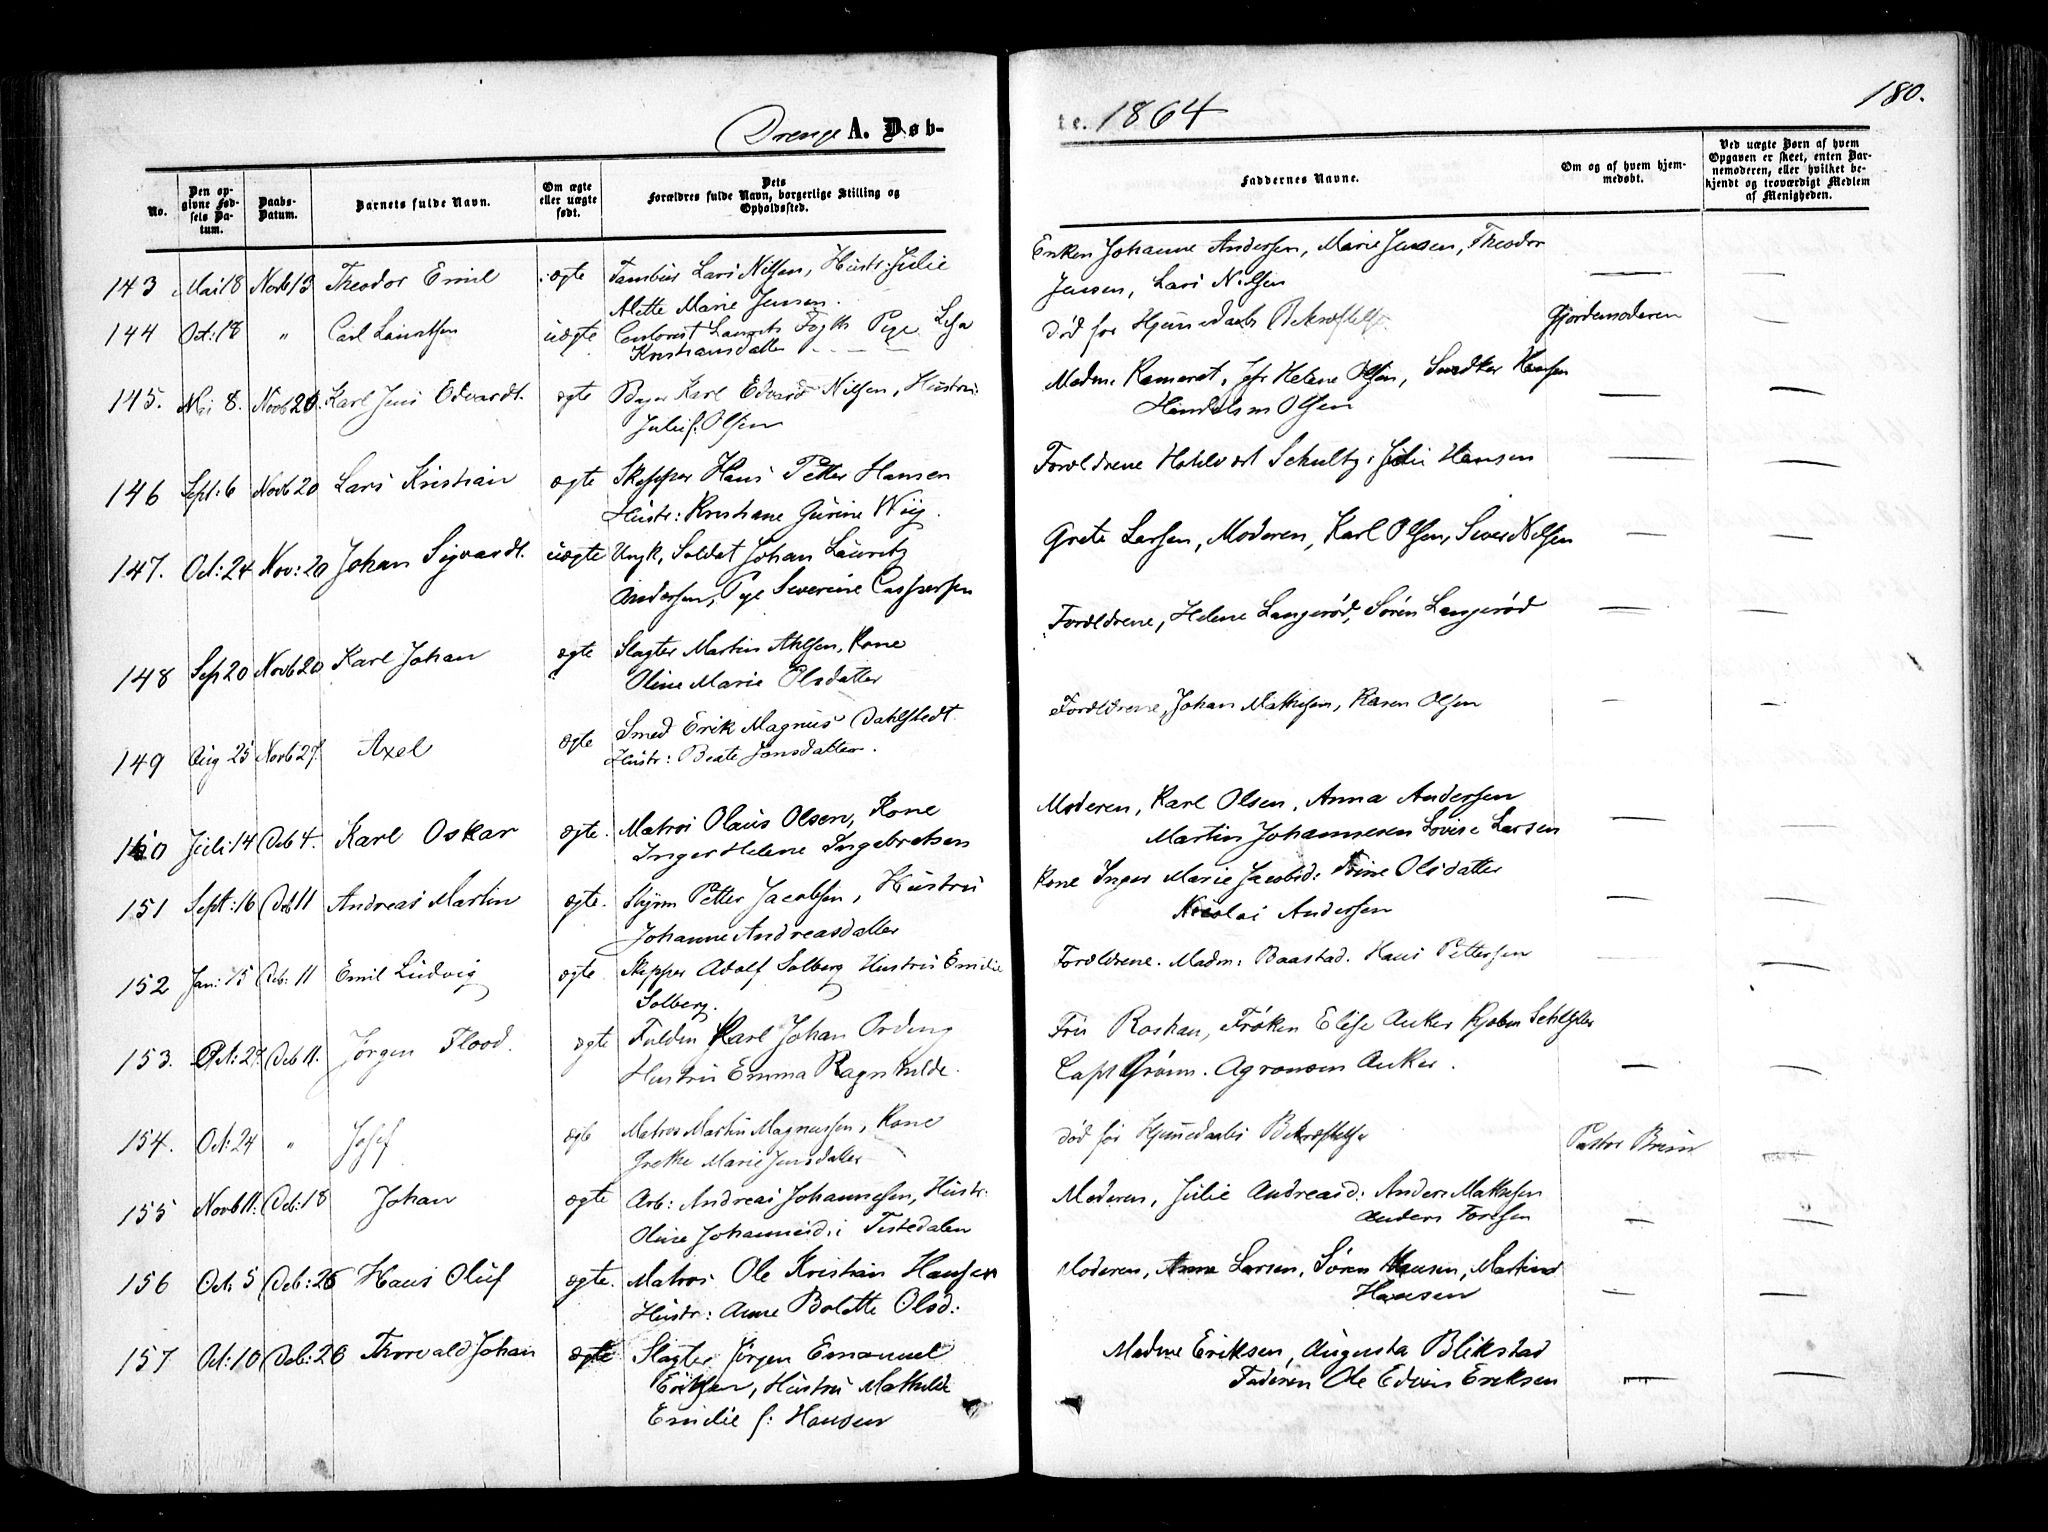 180.
Drenge A. Døb-
te. 1864
No.
Den op-
givne Fød-
sels Da-
tum.
Daabs-
Datum.
Barnets fulde Navn.
Om ægte
eller uægte
født.
Dets
Forældres fulde Navn, borgerlige Stilling og
Opholdssted.
Faddernes Navne.
Om og af hvem hjem-
medøbt.
Ved uægte Børn af hvem
Opgaven er skeet, enten Bar-
nemoderen, eller hvilket be-
kjendt og troværdigt Medlem
af Menigheden.
143 Mai 18 Novb 13 Theodor Emil ægte Tambur Lars Nilsen, Hustr: Julie
Alette Marie Jensen.
Enken Johanne Andersen, Marie Jensen, Theodor
Jensen, Lars Nilsen — —
144 Oct: 18 " Carl Lauritsen uægte Contorist Laurits Pige Lisa
Kristiansdatter
død før Hjemedaabs Bekræftelse Gjordemoderen —
145. Mai 8. Novb 20. Karl Jens Edvardt. ægte Karl Edvard Nilsen, Hustru:
Julie f. Olsen
Madm: Helene Olsen, Hansen
Olsen — —
146 Sept: 6 Novb 20 Lars Kristian ægte Skipper Hans Petter Hansen
Hustr: Kristiane Gurine Wiig.
Forældrene Schultz, Julie Hansen — —
147. Oct: 24 Nov: 20 Johan Sigvardt. uægte Ungk. Soldat Johan Lauritz
Andersen, Pige Severine Caspersen
Grete Larsen, Moderen, Karl Olsen, Sever Nilsen — —
148 Sep 20 Novb 20 Karl Johan ægte Slagter Martin Kone
Oline Marie Olsdatter
Forældrene, Helene Langerød, Søren Langerød — —
149 Aug 25 Novb 27. Axel ægte Smed Erik Magnus Dahlstedt
Hustr: Beate Jonsdatter.
Forældrene, Johan Mathisen, Karen Olsen — —
150 Juli 14 Deb 4. Karl Oskar ægte. Matros Olaus Olsen, Kone
Inger Helene Ingebretsen
Moderen, Karl Olsen, Anna Andersen
Martin Johannesen Lovise Larsen — —
151 Sept: 16 Deb 11 Andreas Martin ægte. Styrm Petter Jacobsen, Hustru
Johanne Andreasdatter
Kone Inger Marie Jacobsd: Trine Olsdatter
Nicolai Andersen — —
152 Jan: 15 Deb: 11 Emil Ludvig ægte. Skipper Adolf Solberg Hustru Emilie
Solberg.
Forældrene. Madm: Baastad. Hans Pettersen — —
153. Oct: 27. Deb 11. Jørgen Flood. ægte Fuldm Karl Johan Ording
Hustru Emma Ragnhilde.
Fru Roshan, Frøken Elise Anker
Capt Grønn. Agronom Anker. — —
154. Oct: 24 " Josef ægte Matros Martin Magnussen, Kone
Grethe Marie Jensdatter
død før Hjemedaabs Bekræftelse Pastor Bruun —
155 Novb 11: Deb: 18 Johan ægte Arb: Andreas Johannesen, Hustr:
Oline Johannesd: i Tistedalen
Moderen, Julie Andreasd: Anders Mathisen
Anders — —
156 Oct: 5 Deb: 26 Hans Oluf ægte. Matros Ole Kristian Hansen
Hustr: Anne Bolette Olsd:
Moderen, Anna Larsen, Søren Hansen, Martine
Hansen — —
157 Oct: 10 Deb: 26 Thorvald Johan ægte Slagter Jørgen Emanuel
Eriksen, Hustru Mathilde
Emilie f: Hansen
Madme Eriksen, Augusta Blikstad
Faderen Ole Edvin Eriksen — —